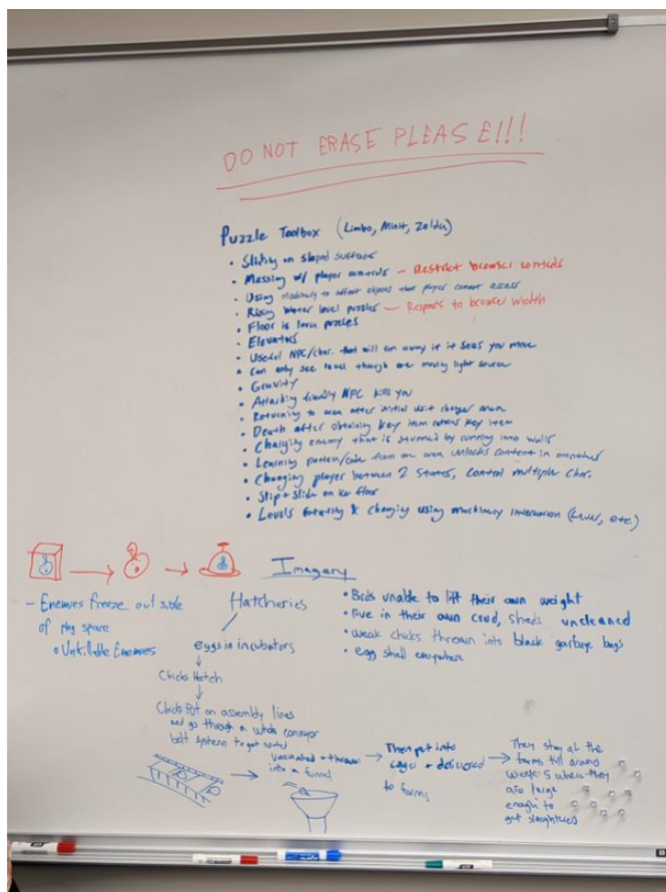 DO NOT ERASE PLEASE!!!
Puzzle Toolbox (Limbo, Minit, Zelda)
• Sliding on sloped surfaces
• Messing w/ player controls – Restrict browser controls
• Using machinery to affect objects that player cannot access
• Rising water level puzzles – Responds to browser width
• Floor is lava puzzles
• Elevators
• Useful NPC/char. that will run away if it sees you move
• Can only see level though one moving light source
• Gravity
• Attacking friendly NPC kills you
• Returning to area after initial visit changes area
• Death after obtaining key item retains key item
• Charging enemy that is stunned by running into walls
• Learning pattern/code from one area unlocks content in another
• Changing player between 2 states, control multiple char.
• Slip + slide on ice floor
• Levels rotating & changing using machinery interaction (Lever, etc.)
Imagery
– Enemies freeze outside
of play space
• Unkillable Enemies
Hatcheries
eggs in incubators
Chicks Hatch
Chicks Put on assembly lines
and go through a whole conveyor
belt system to get sorted
vaccinated + thrown
into a funnel
Then put into
cages + delivered
to farms
They stay at the
farms till around
week 5 where they
are large
enough to
get slaughtered
• Birds unable to lift their own weight
• live in their own crud, sheds uncleaned
• weak chicks thrown into black garbage bags
• egg shell everywhere